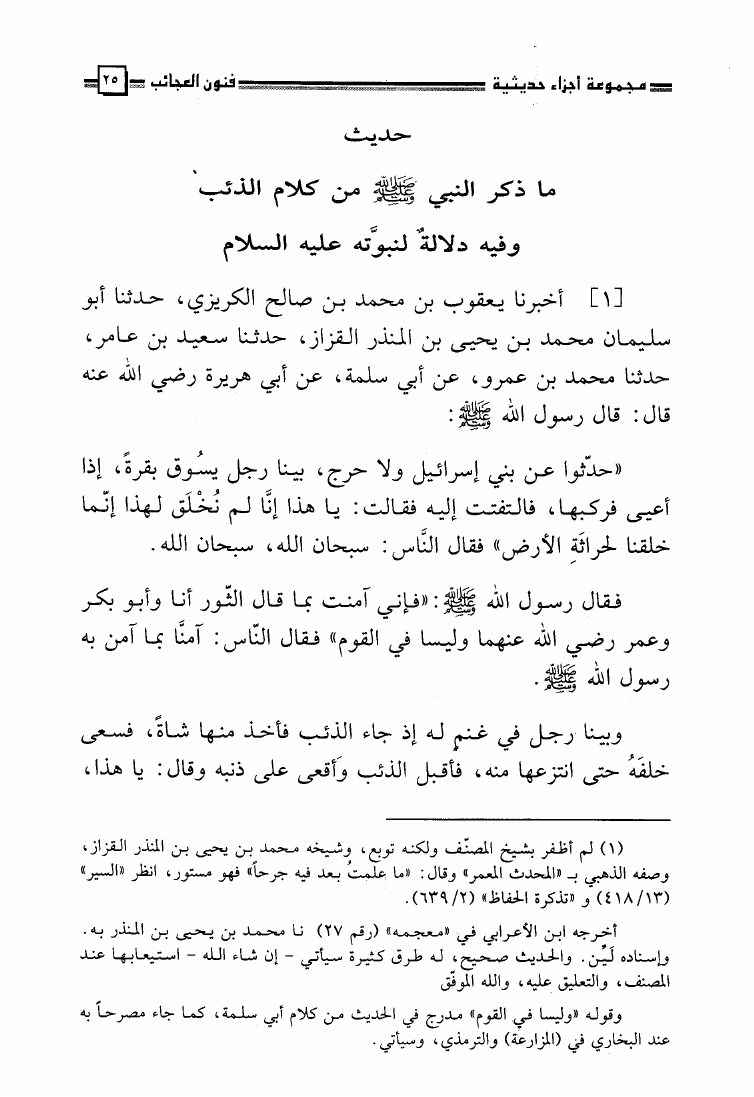 مجموعة أجزاء حديثية فنون العجائب ٢٥
حديث
ما ذكر النبي ﷺ من كلام الذئب
وفيه دلالةٌ لنبوَّته عليه السلام
[١] أخبرنا يعقوب بن محمد بن صالح الكريزي، حدثنا أبو
سليمان محمد بن يحيى بن المنذر القزاز، حدثنا سعيد بن عامر،
حدثنا محمد بن عمرو، عن أبي سلمة، عن أبي هريرة رضي الله عنه
قال: قال رسول الله ﷺ:
«حدّثوا عن بني إسرائيل ولا حرج، بينا رجل يسُوق بقرةً، إذا
أعيى فركبها، فالتفتت إليه فقالت: يا هذا إنَّا لم نُخْلَق لهذا إنّما
خلقنا لحراثَةِ الأرض» فقال النَّاس: سبحان الله، سبحان الله.
فقال رسول الله ﷺ: «فإني آمنت بما قال الثّور أنا وأبو بكر
وعمر رضي الله عنهما وليسا في القوم» فقال النّاس: آمنَّا بما آمن به
رسول الله ﷺ.
وبينا رجل في غنمٍ له إذ جاء الذئب فأخذ منها شاةً، فسعى
خلفَهُ حتى انتزعها منه، فأقبل الذئب وأقعى على ذنبه وقال: يا هذا،
(١) لم أظفر بشيخ المصنّف ولكنه توبع، وشيخه محمد بن يحيى بن المنذر القزاز،
وصفه الذهبي بـ «المحدث المعمر» وقال: «ما علمتُ بعد فيه جرحاً» فهو مستور، انظر «السير»
(٤١٨/١٣) و «تذكرة الحفاظ» (٦٣٩/٢).
أخرجه ابن الأعرابي في «معجمه» (رقم ٢٧) نا محمد بن يحيى بن المنذر به.
وإسناده لَيِّن. والحديث صحيح، له طرق كثيرة سيأتي - إن شاء الله - استيعابها عند
المصنف، والتعليق عليه، والله الموفّق
وقوله «وليسا في القوم» مدرج في الحديث من كلام أبي سلمة، كما جاء مصرحاً به
عند البخاري في (المزارعة) والترمذي، وسيأتي.